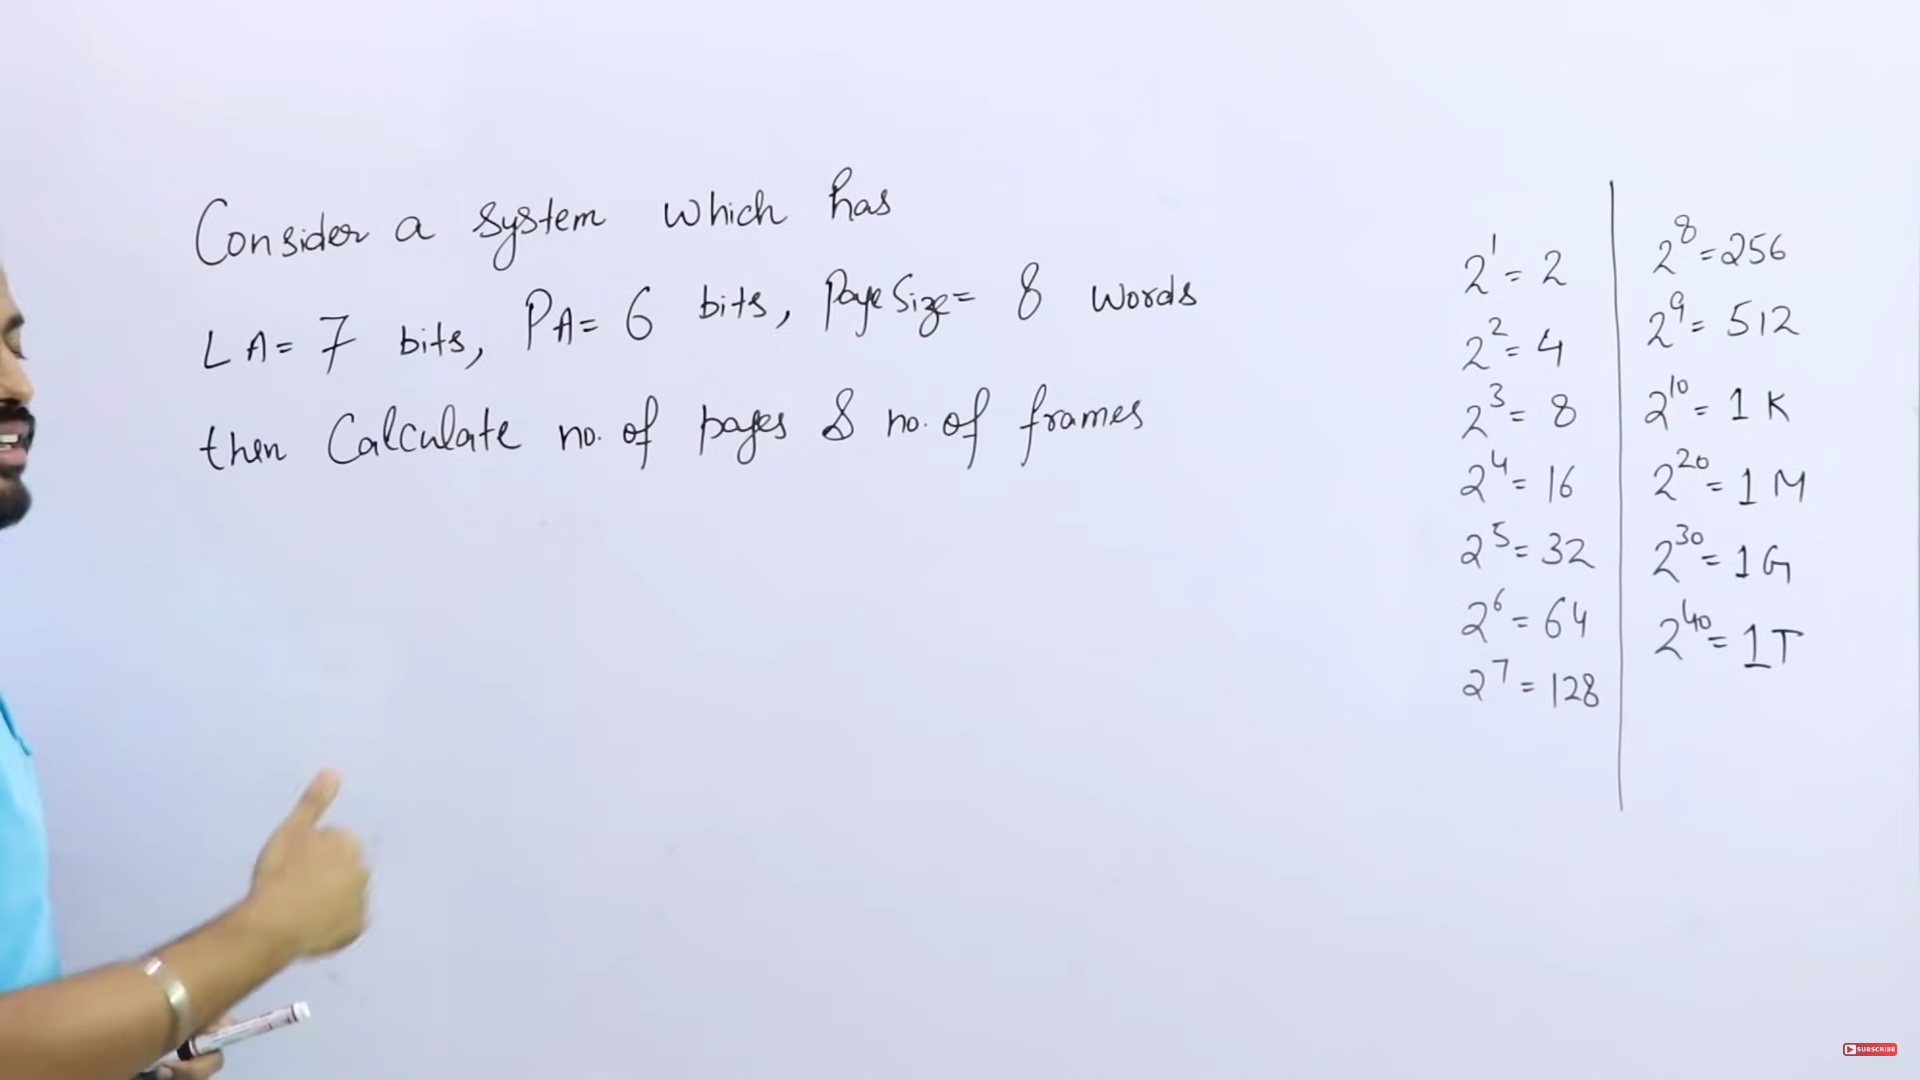 Consider a system which has
LA= 7 bits, PA= 6 bits, Page Size= 8 words
then Calculate no. of pages & no. of frames
2¹ = 2
2² = 4
2³ = 8
2⁴ = 16
2⁵ = 32
2⁶ = 64
2⁷ = 128
2⁸ = 256
2⁹ = 512
2¹⁰ = 1 K
2²⁰ = 1 M
2³⁰ = 1 G
2⁴⁰ = 1 T
SUBSCRIBE